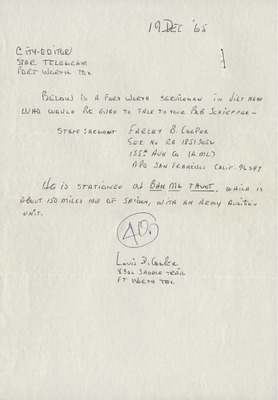 19 DEC '65
CITY-EDITOR
STAR TELEGRAM
FORT WORTH TEX
BELOW IS A FORT WORTH SERVICEMAN IN VIET NAM
WHO WOULD BE GLAD TO TALK TO YOUR BOB SCHIEFFER-
STAFF SARGENT FARLEY B. COOPER
SER NO RA 18513052
155th AVN CO (AML)
APO SAN FRANCISCO CALIF. 96297
HE IS STATIONED IN BAN ME THUOT, WHICH IS
ABOUT 150 MILES NE OF SAIGON, WITH AN ARMY AVIATION
UNIT.
LOUIS B. COOPER
SADDLE TRAIL
FT WORTH TEX